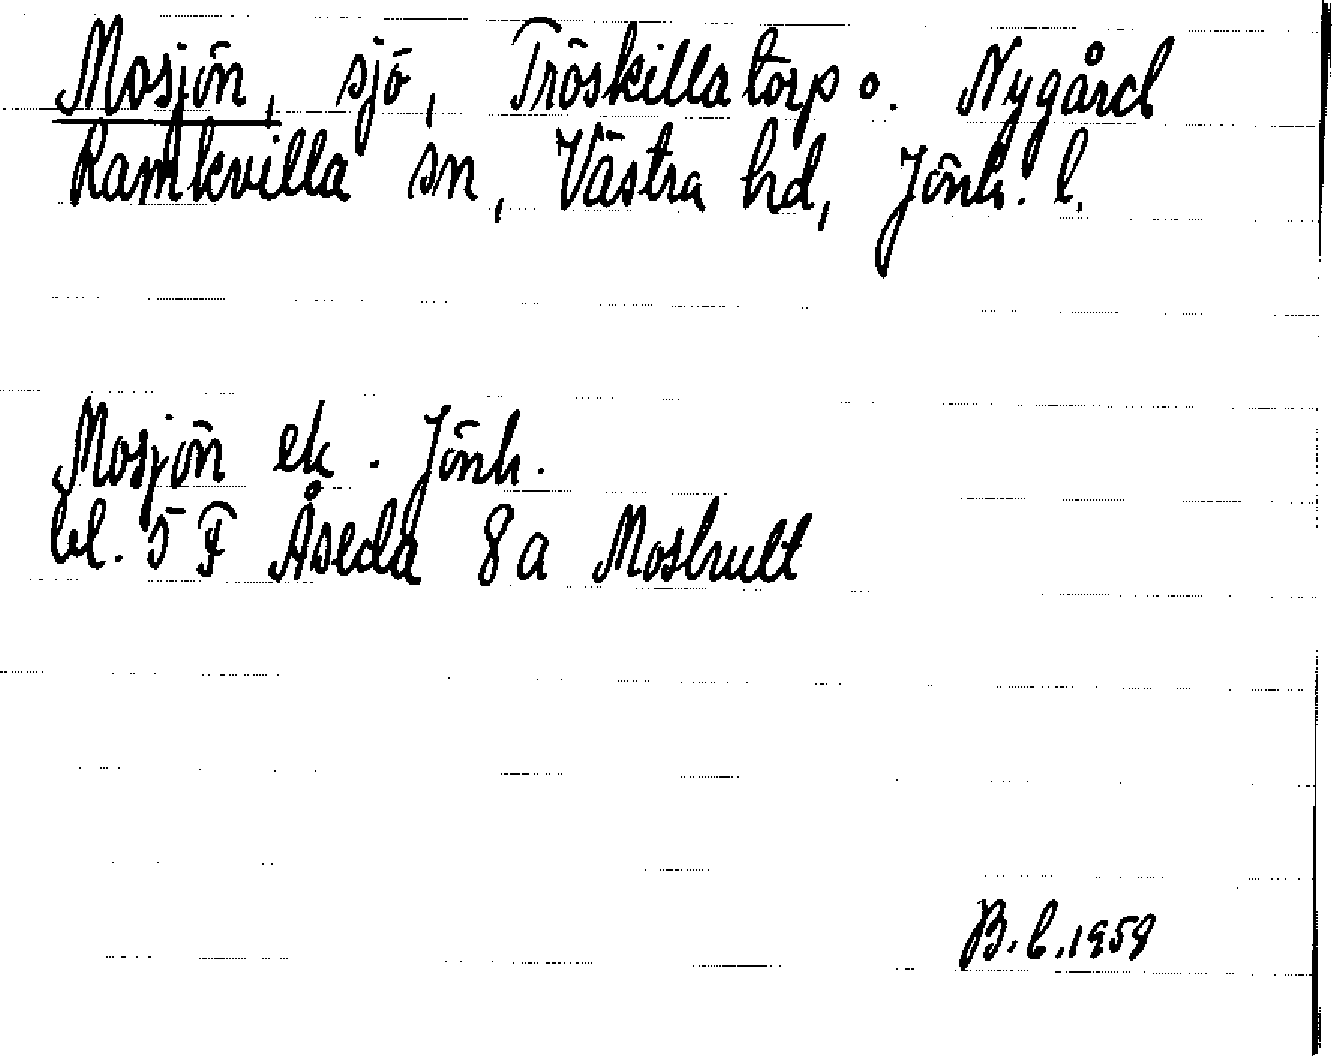 Mosjön, sjö, Tröskillatorp o. Nygård
Ramkvilla sn, Västra hd, Jönk. l.
Mosjön ek. Jönk.
bl. 5 F Åseda 8 a Moshult
B.L. 1959